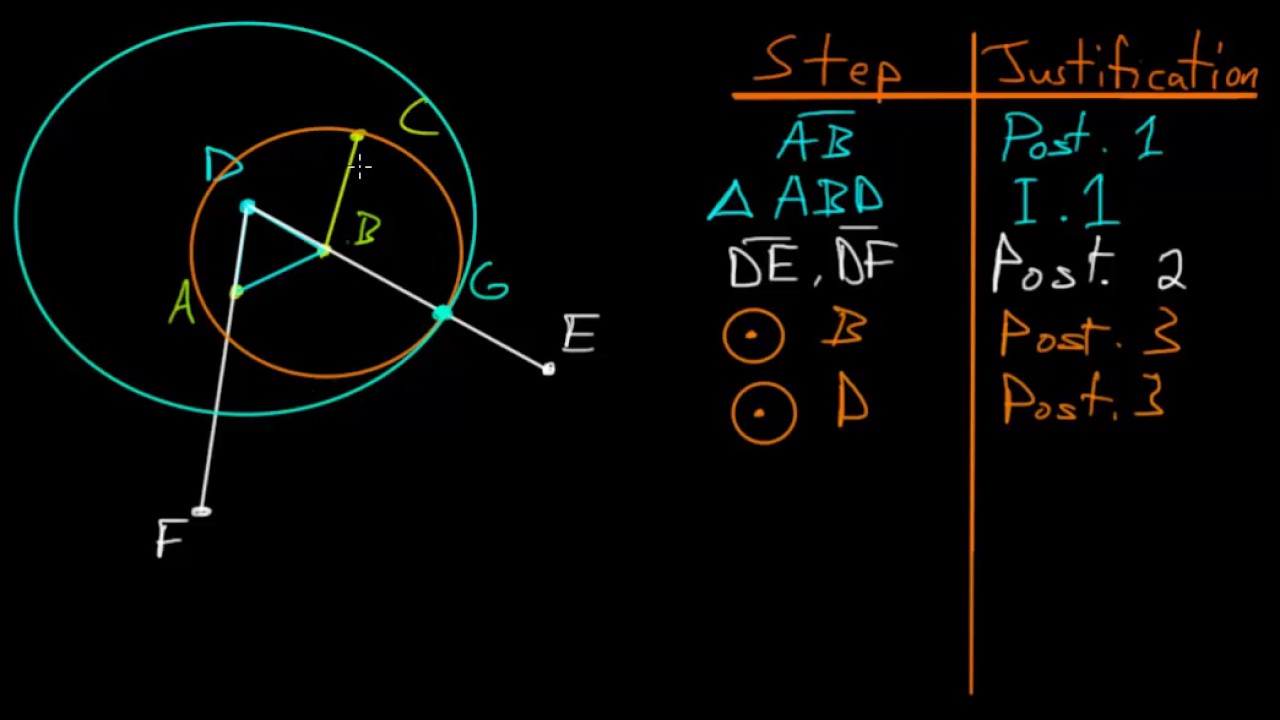 C
D
.B
A
G
E
F
Step Justification
A̅B̅ Post. 1
△ ABD I.1
D̅E̅, D̅F̅ Post. 2
⊙ B Post. 3
⊙ D Post. 3